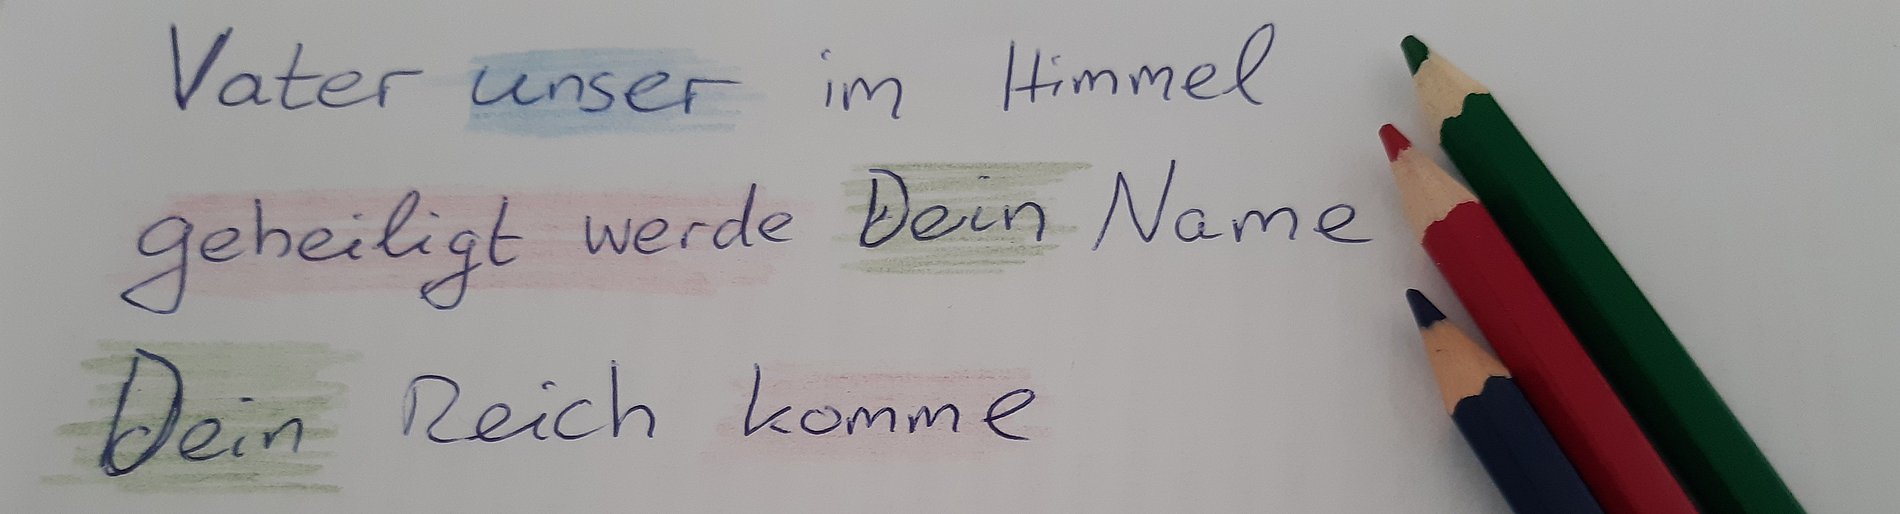 Vater unser im Himmel
geheiligt werde Dein Name
Dein Reich komme